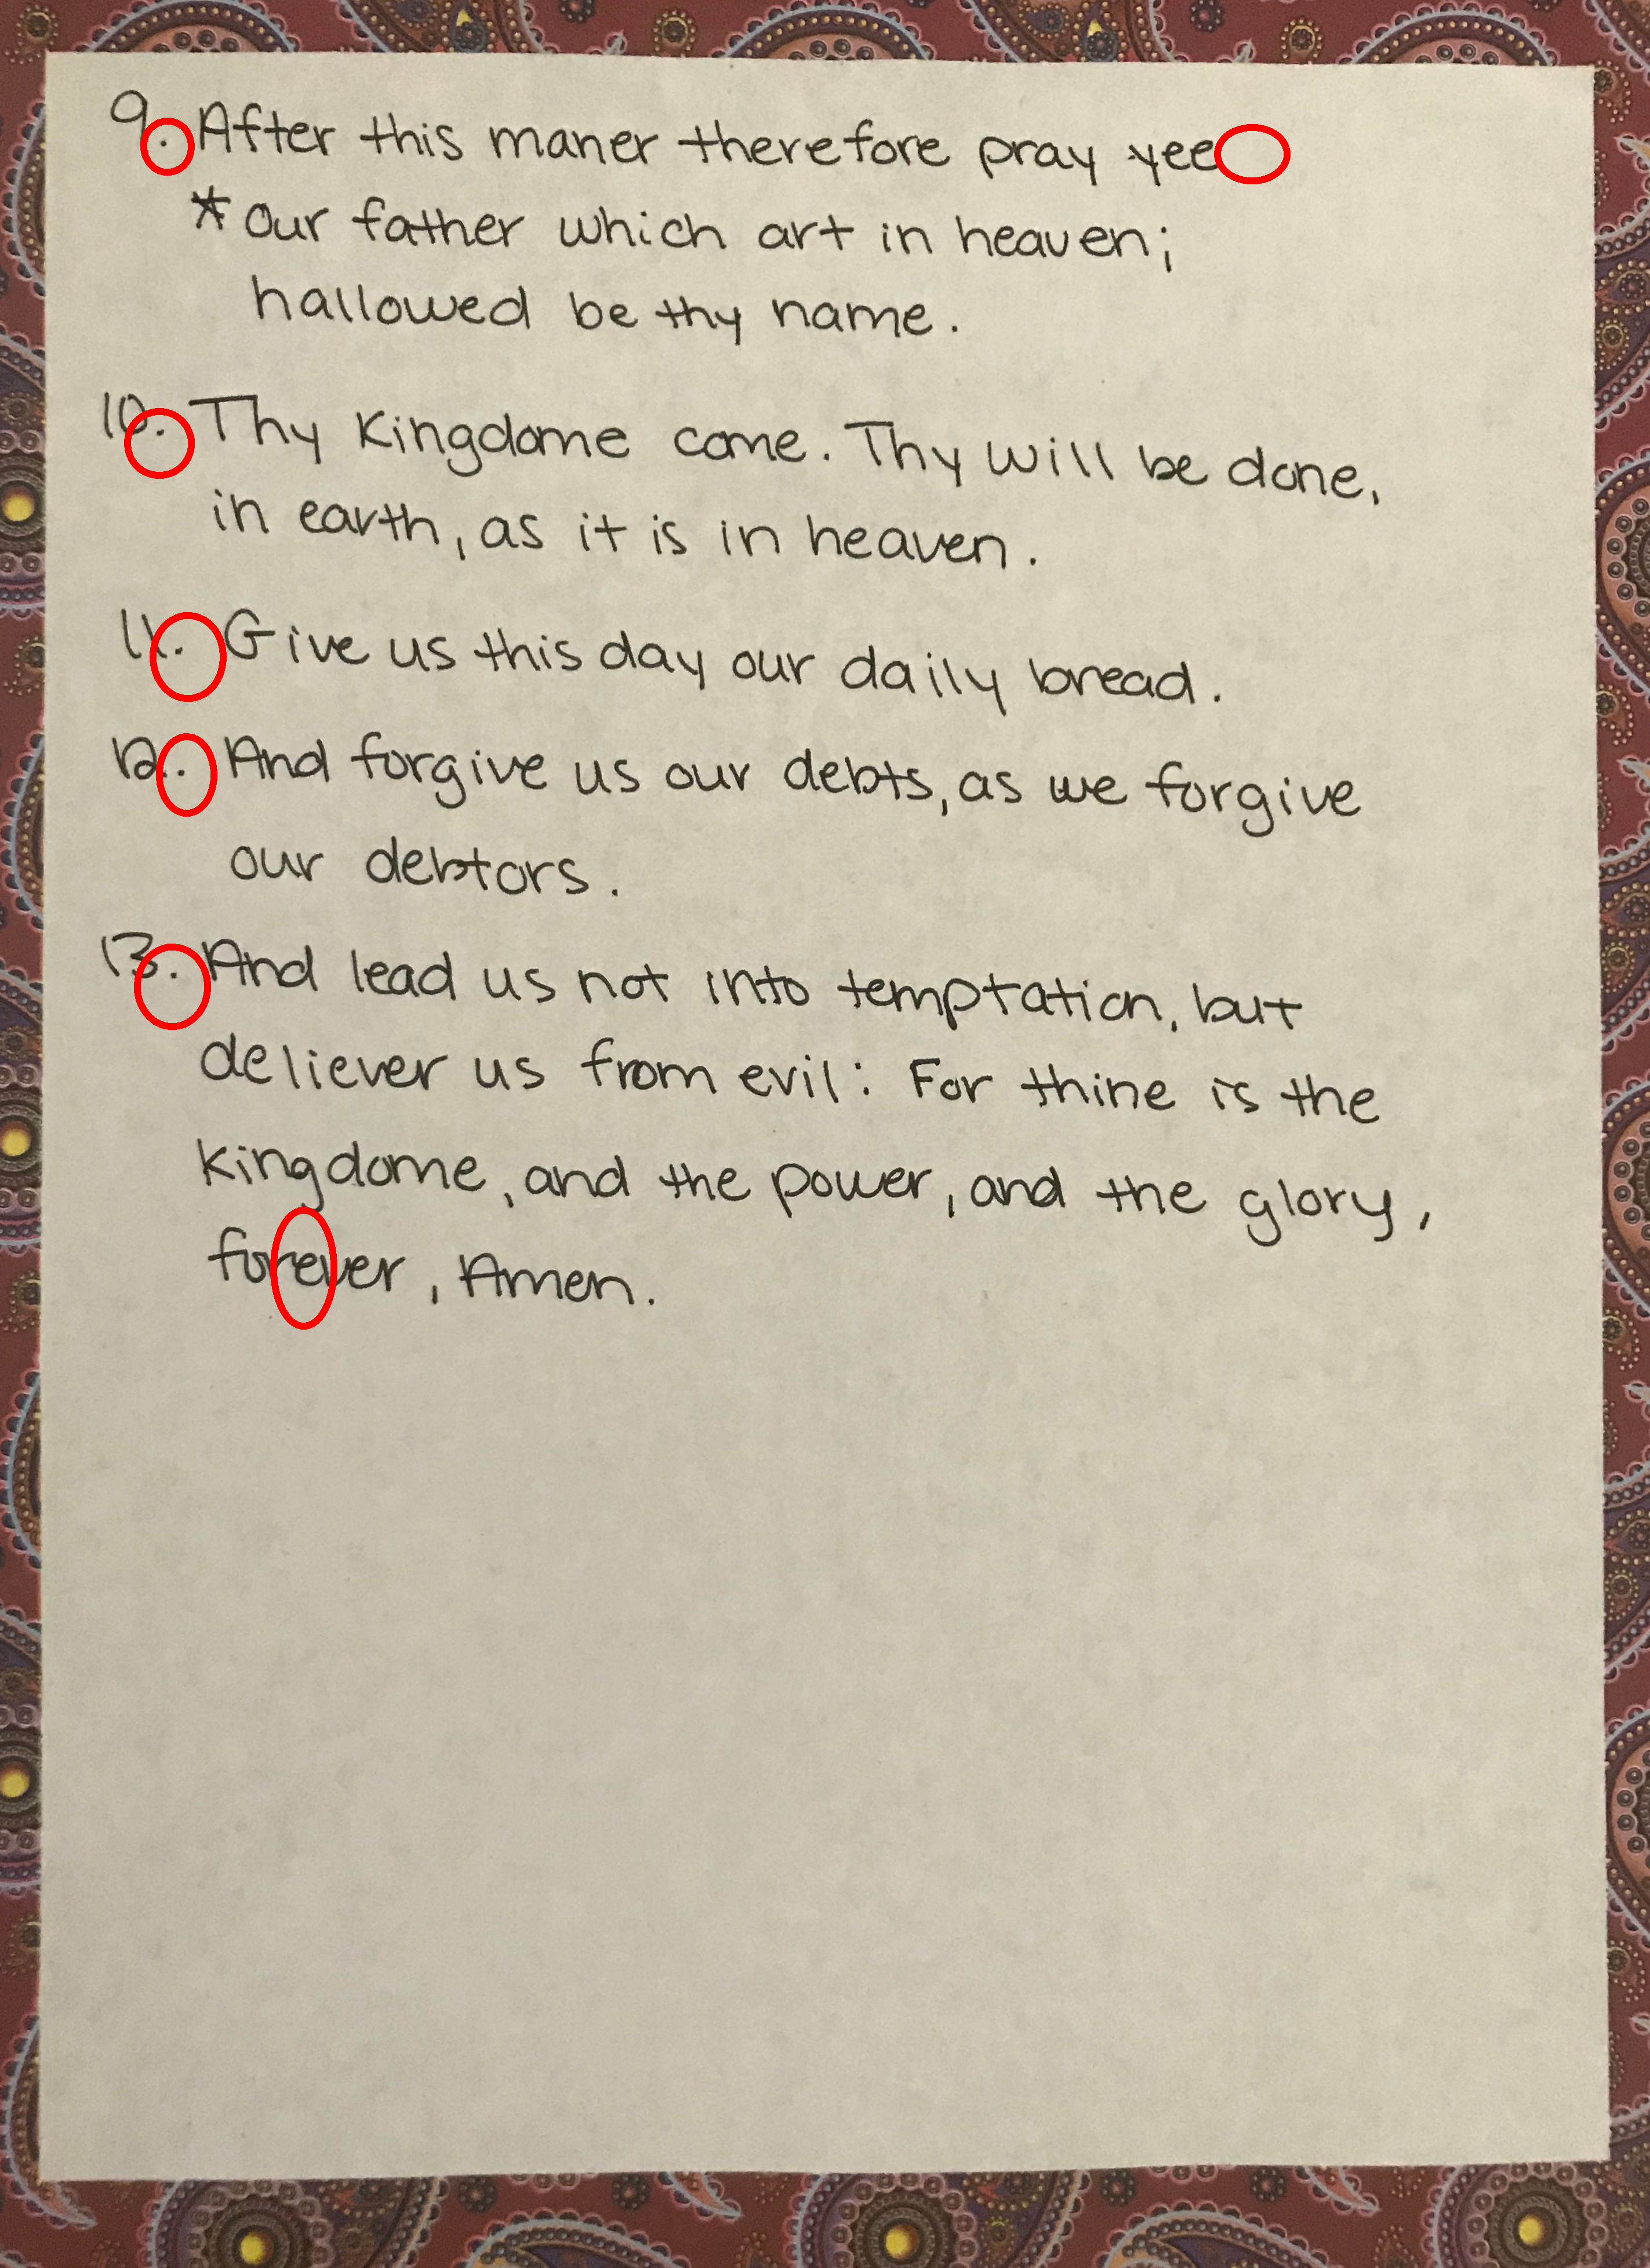 9. After this maner therefore pray yee
* Our father which art in heaven;
hallowed be thy name.
10. Thy Kingdome come. Thy will be done,
in earth, as it is in heaven.
11. Give us this day our daily bread.
12. And forgive us our debts, as we forgive
our debtors.
13. And lead us not into temptation, but
deliever us from evil: For thine is the
kingdome, and the power, and the glory,
forever, Amen.